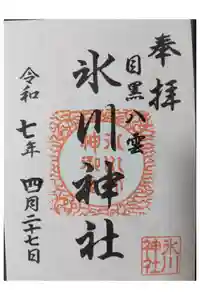 奉拝
目黒八雲
氷川神社
令和七年 四月二十七日
氷川
神社